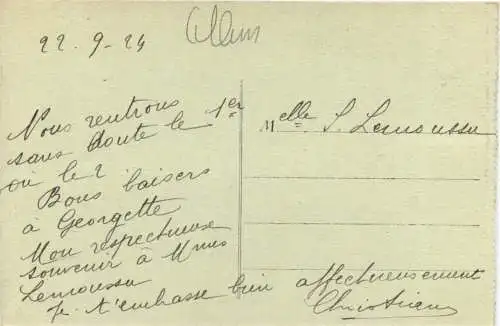 22.9.24
Nous rentrons
sans doute le 1er
ou le 2
Bons baisers
à Georgette
Mon respectueux
souvenir à Mmes
Lemoussu
Je t'embrasse bien affectueusement
Melle S. Lemoussu